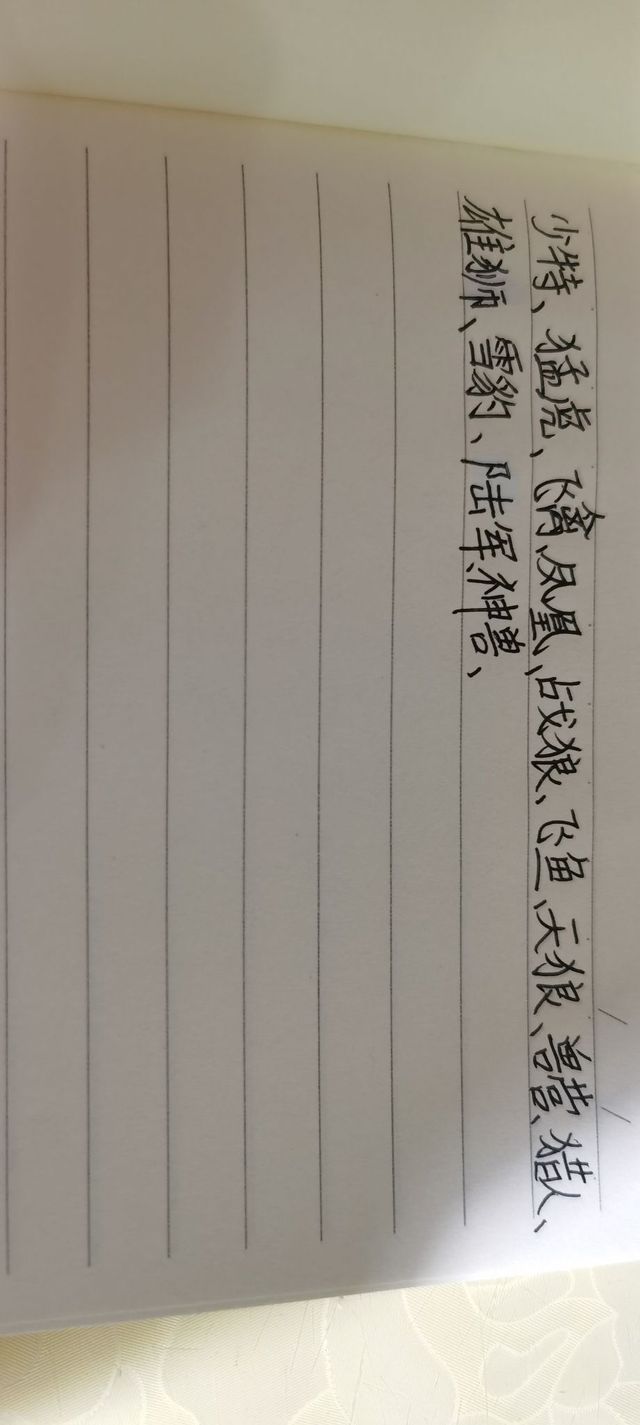 少特、猛虎、飞禽、凤凰、战狼、飞鱼、天狼、兽营、猎人、
雄狮、雪豹、陆军、神兽、